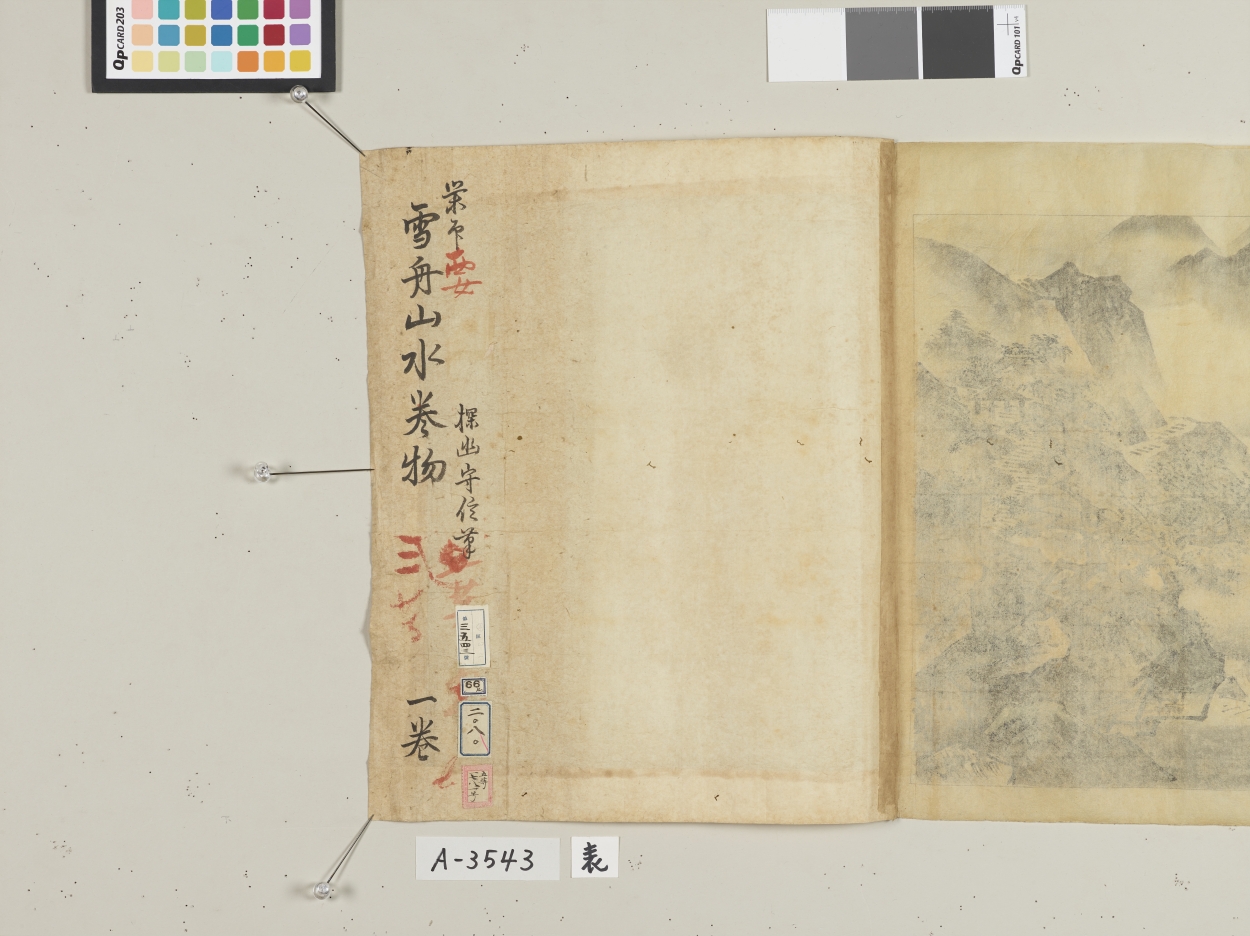 QPCARD 203
QPCARD 101 v4
栄印 要
雪舟山水巻物 一巻
探幽守信筆
三五四三
66
二〇八〇
A-3543
表